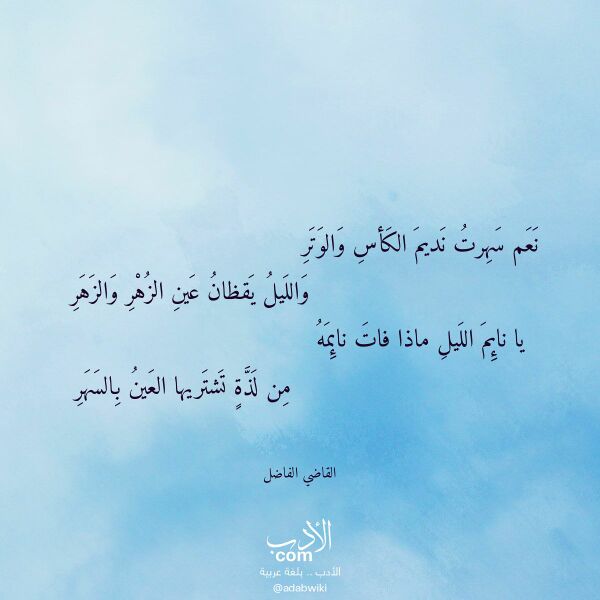 نَعَم سَهِرتُ نَديمَ الكَأسِ وَالوَتَرِ
وَاللَيلُ يَقظانُ عَينِ الزُهْرِ وَالزَهَرِ
يا نائِمَ اللَيلِ ماذا فاتَ نائِمَهُ
مِن لَذَّةٍ تَشتَريها العَينُ بِالسَهَرِ
القاضي الفاضل
الأدب
com
الأدب .. بلغة عربية
@adabwiki